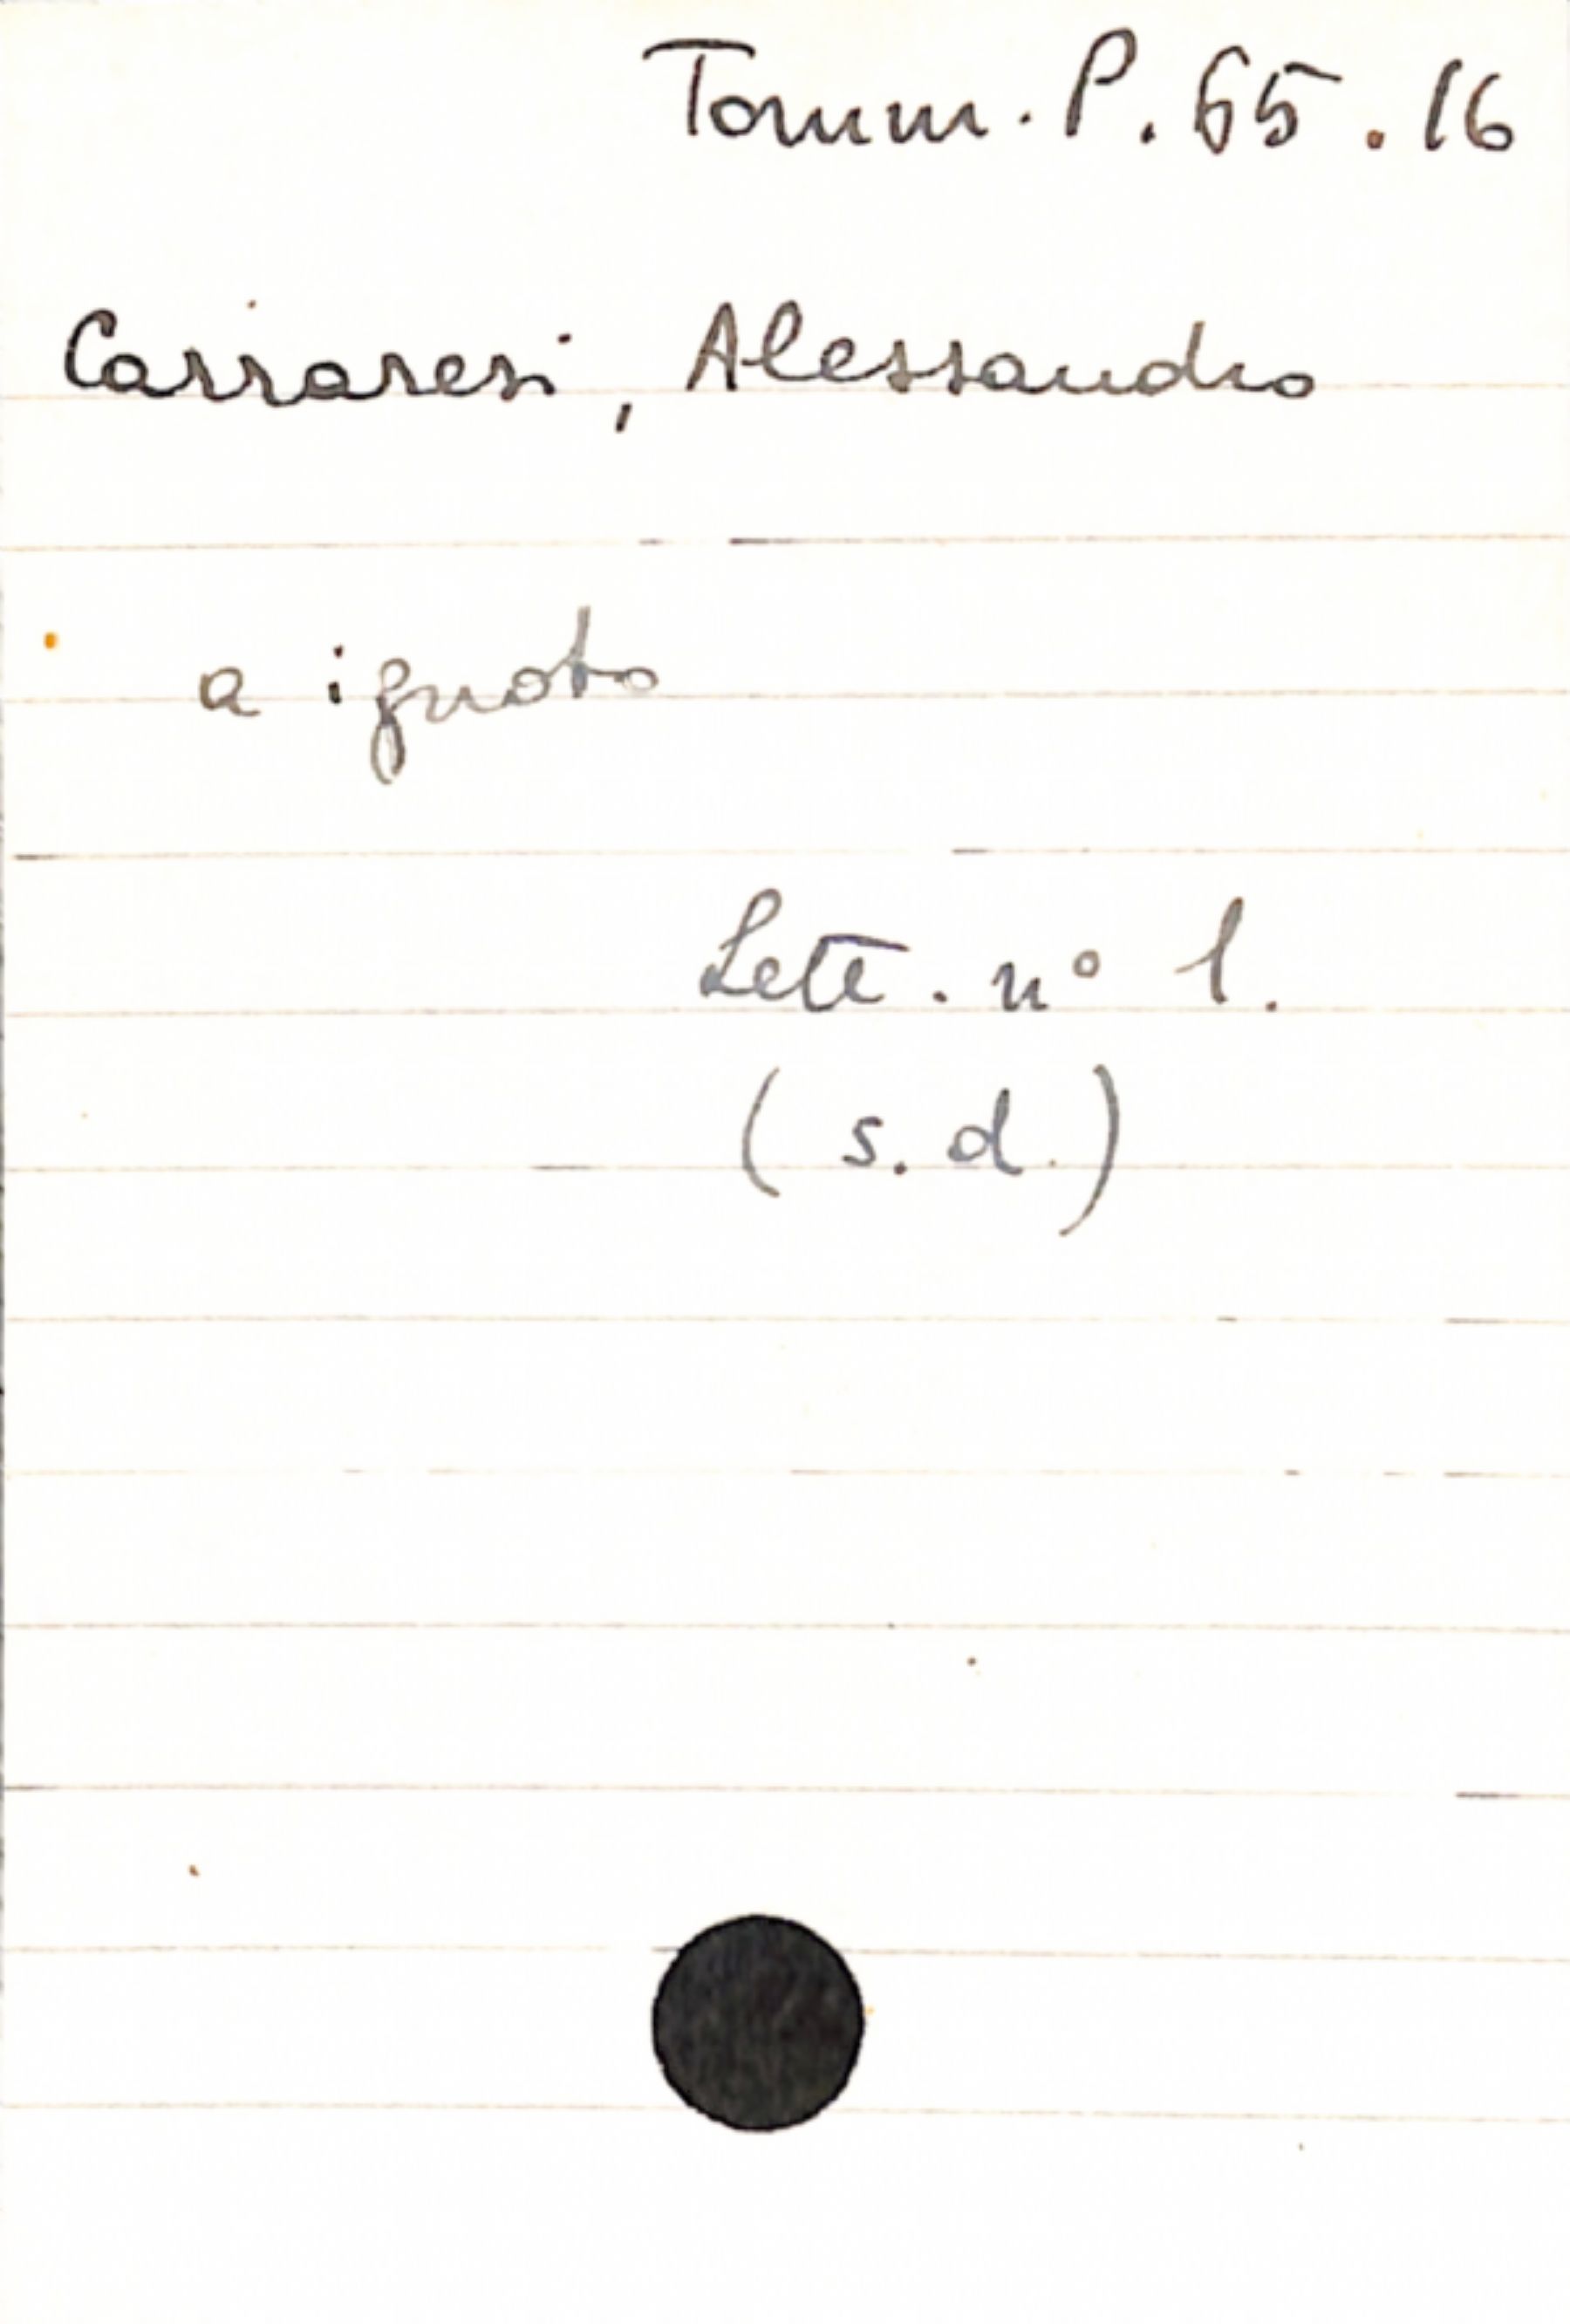 Tomm. P. 65. 16
Carraresi, Alessandro
a ignoto
Lett. nº 1.
(s. d.)